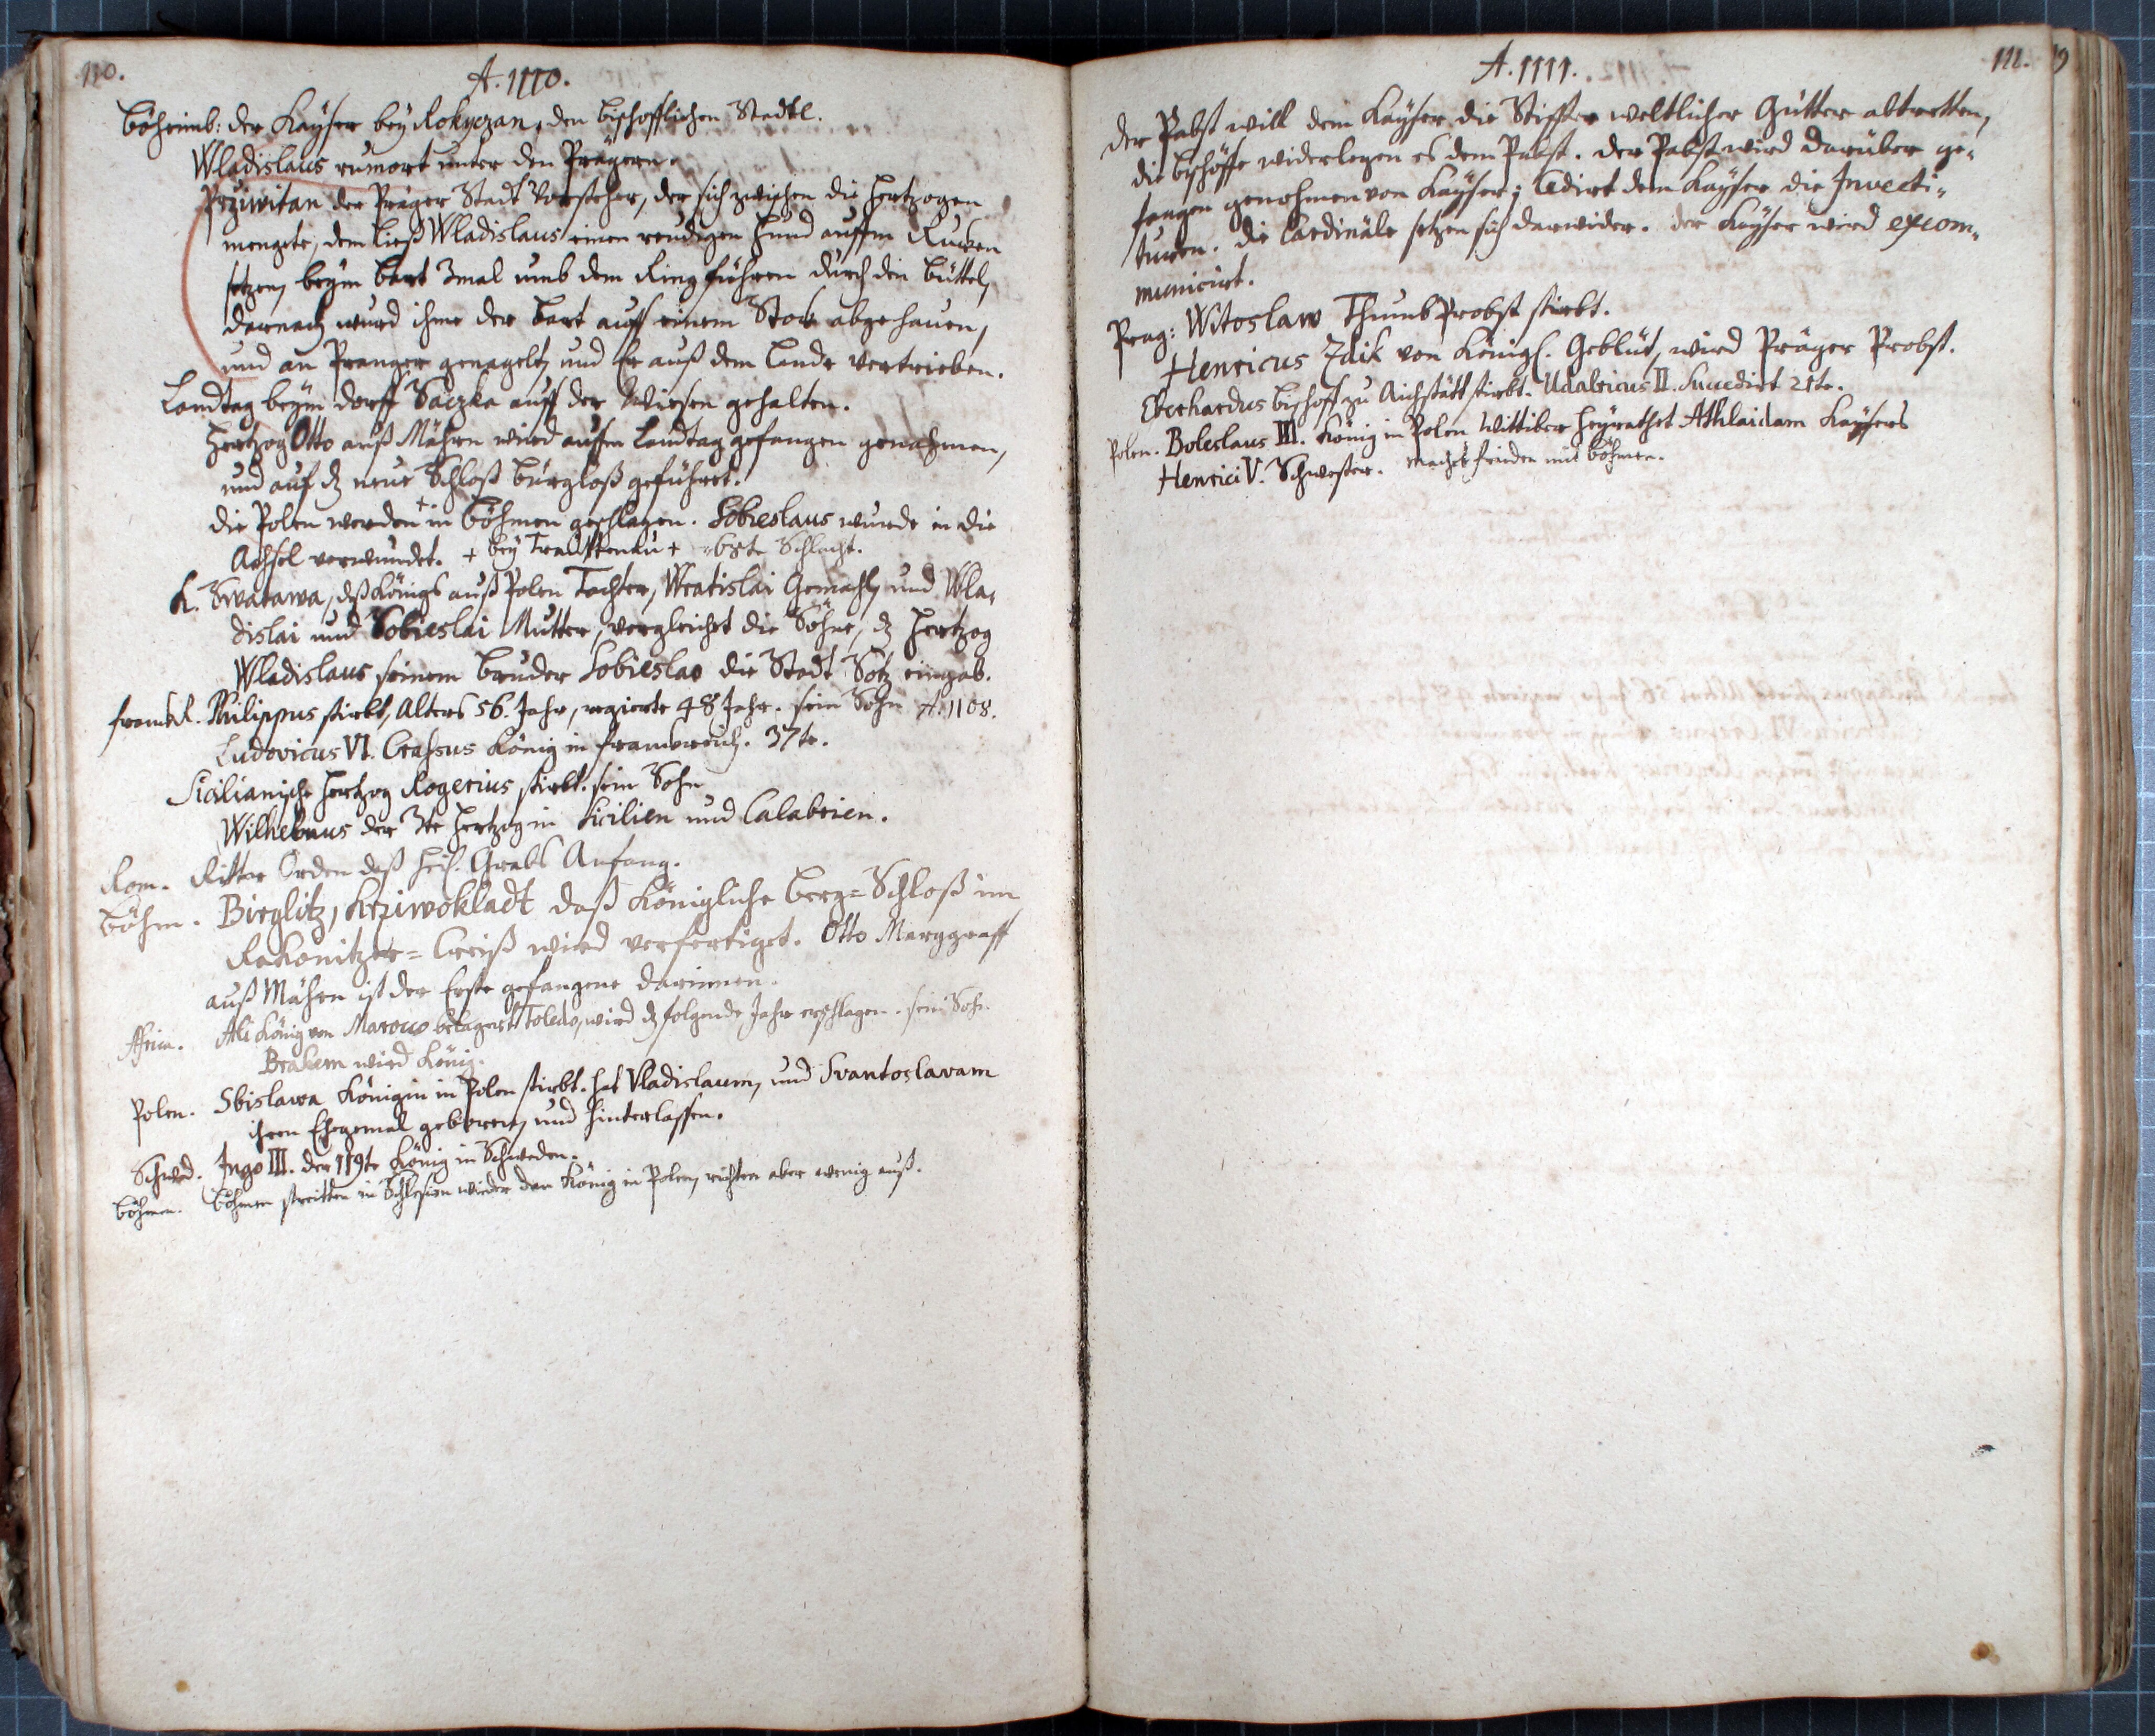 110.
A. 1110.
Böheimb: der Kayser bey Rokyczan, den bischofflichen Stadtl.
Wladislaus rumort unter den Prägern.
Prziwitan der Präger Stadt Vorsteher, der sich zwischen die Hertzogen
mengete, dem ließ Wladislaus einen reudigen Hund auffm Rucken
setzen, beym Bart 3mal umb dem Ring führen durch den Büttel,
darnach wurd ihme der Bart auff einem Stock abgehauen,
und an Pranger genagelt, und Er auß dem Lande vertrieben.
Landtag beym dorff Saczka auff der Wiesen gehalten.
Hertzog Otto auß Mähren wird auffm Landtag gefangen genohmen,
und auf dz neue Schloß Bürgloß geführet.
die Polen werden + in Böhmen geschlagen. Sobieslaus wurde in die
Achsel verwundet. + bey Trauttenau + 68te Schlacht.
K. Swatawa, deß Königs auß Polen Tochter, Wratislai Gemahl, und Wla-
dislai und Sobieslai Mutter, vergleichet die Söhne, dz Hertzog
Wladislaus seinem Bruder Sobieslao die Stadt Sotz eingab.
Franckr. Philippus stirbt, Alters 56. Jahr, regierte 48 Jahr. sein Sohn A. 1108.
Ludovicus VI. Crassus König in Franckreich. 37te.
Sicilianische Hertzog Rogerius stirbt. sein Sohn
Wilhelmus der 3te Hertzog in Sicilien und Calabrien.
Rom. Ritter Orden deß Heil. Grabs Anfang.
Böhm. Birglitz, Krziwokladt daß Königliche Berg=Schloß im
Rakonitzer=Creiß wird verfertiget. Otto Marggraff
auß Mähren ist der Erste gefangene darinnen.
Africa. Ali König von Marocco belagert Toledo, wird dz folgende Jahr erschlagen. sein Sohn
Brahem wird König.
Polen. Sbislawa Königin in Polen stirbt. hat Vladislaum, und Svantoslavam
ihren Ehegemal gebohren, und hinterlassen.
Schwed. Ingo III. der 119te König in Schweden.
Böhmen. Böhmen streitten in Schlesien wieder den König in Polen, richten aber wenig auß.
A. 1111.
111.
Der Pabst will dem Kayser die Stiffter weltlicher Gütter abtretten,
die Bischöffe widerlegen es dem Pabst. der Pabst wird darüber ge-
fangen genohmen von Kayser; Cedirt dem Kayser die Investi-
turen. die Cardinäle setzen sich darwider. der Kayser wird excom-
municirt.
Prag: Witoslaw Thumb Probst stirbt.
Henricus Zdik von Königl. Geblüt, wird Präger Probst.
Eberhardus Bischoff zu Aichstätt stirbt. Udalricus II. succedirt 21te.
Polen. Boleslaus III. König in Polen Wittiber heyrathet Athlaidam Kaysers
Henrici V. Schwester. machet frieden mit Böhmen.